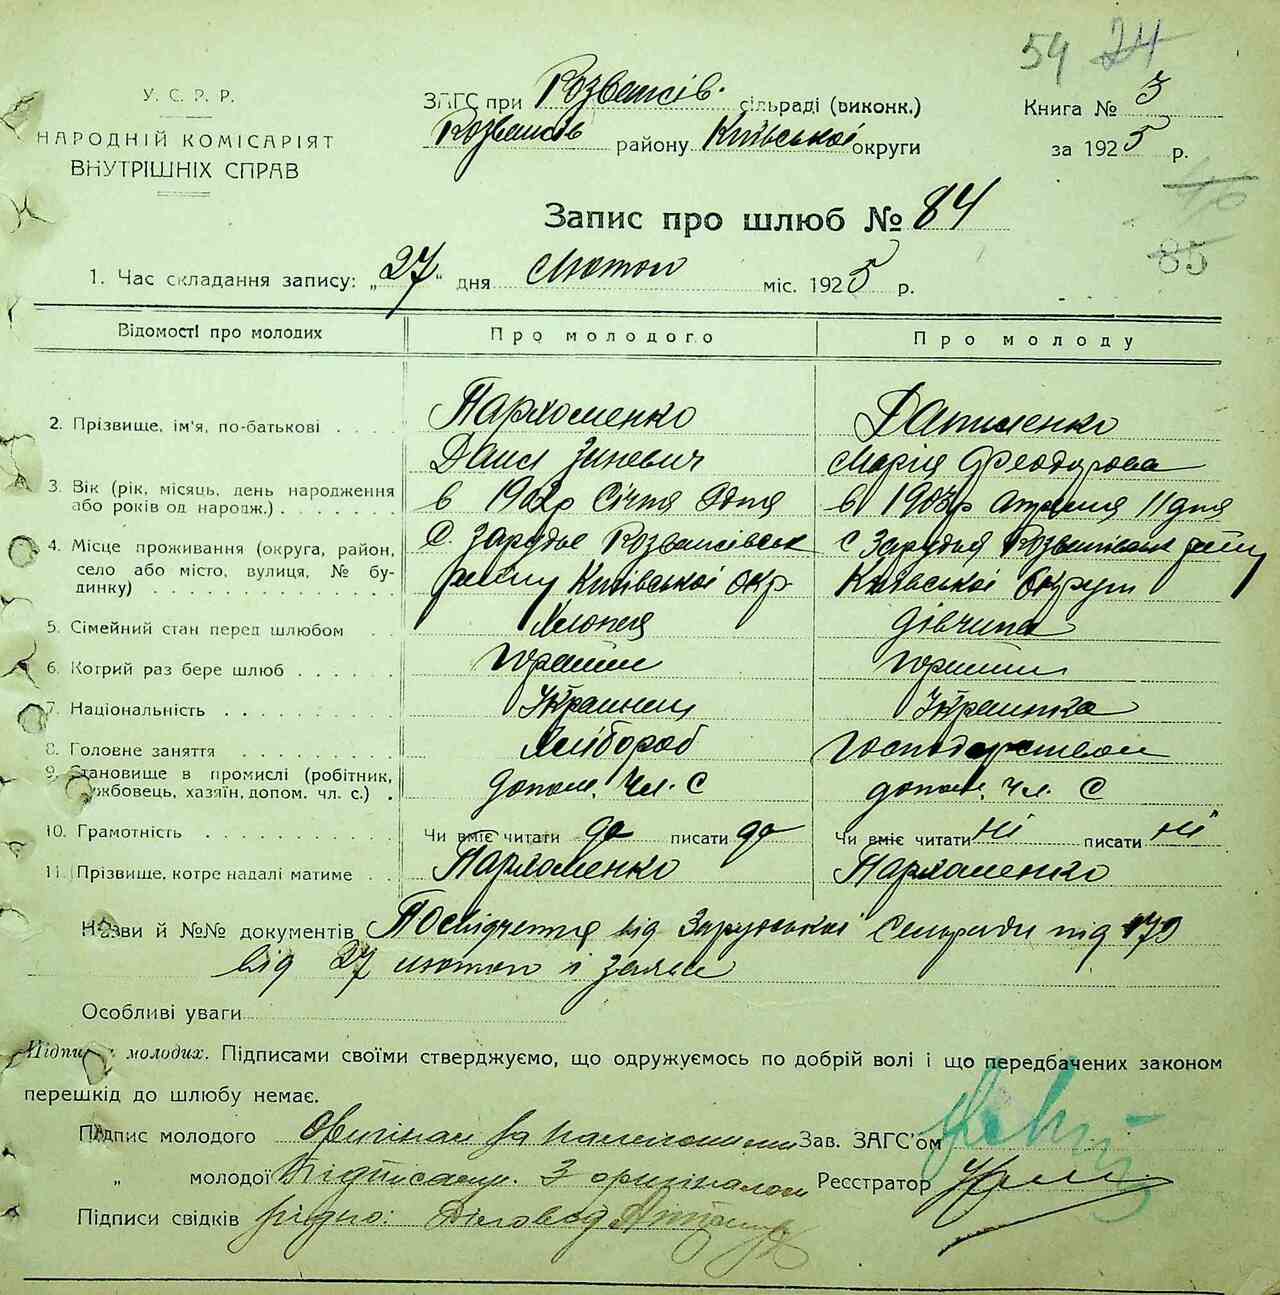 54 24
У. С. Р. Р.
НАРОДНІЙ КОМІСАРІЯТ
ВНУТРІШНІХ СПРАВ
ЗАГС при Розважів. сільраді (виконк.)
Розважів району Київської округи
Книга № 3
за 1925 р.
46
85
Запис про шлюб № 84
1. Час складання запису: „27" дня Лютого міс. 1925 р.
Відомості про молодих Про молодого Про молоду
2. Прізвище, ім'я, по-батькові Пархоменко
Зіневич Марія Феодорова
3. Вік (рік, місяць, день народження
або років од народж.) в 1902р Січня дня в 1903р 11 дня
4. Місце проживання (округа, район,
село або місто, вулиця, № бу-
динку)
С. Зарудье Розважівськ с Зарудья Розважівськ району
району Київської окр. Київської Округи
5. Сімейний стан перед шлюбом дівчина
6. Котрий раз бере шлюб
7. Національність Українец Українка
8. Головне заняття Хлібороб господарством
9. Становище в промислі (робітник,
службовець, хазяїн, допом. чл. с.) допом. Чл. С допом. Чл. С
10. Грамотність Чи вміє читати да писати да Чи вміє читати Ні писати Ні
11. Прізвище, котре надалі матиме Пархоменко Пархоменко
Назви й №№ документів Посвідчення від Зарудської Сельради під 179
від 27 лютого і заяви
Особливі уваги
Підписи молодих. Підписами своїми стверджуємо, що одружуємось по добрій волі і що передбачених законом
перешкід до шлюбу немає.
Підпис молодого Оригінал за належними Зав. ЗАГС'ом
„ молодої підписами. З оригіналом Реєстратор
Підписи свідків згідно: Діловод